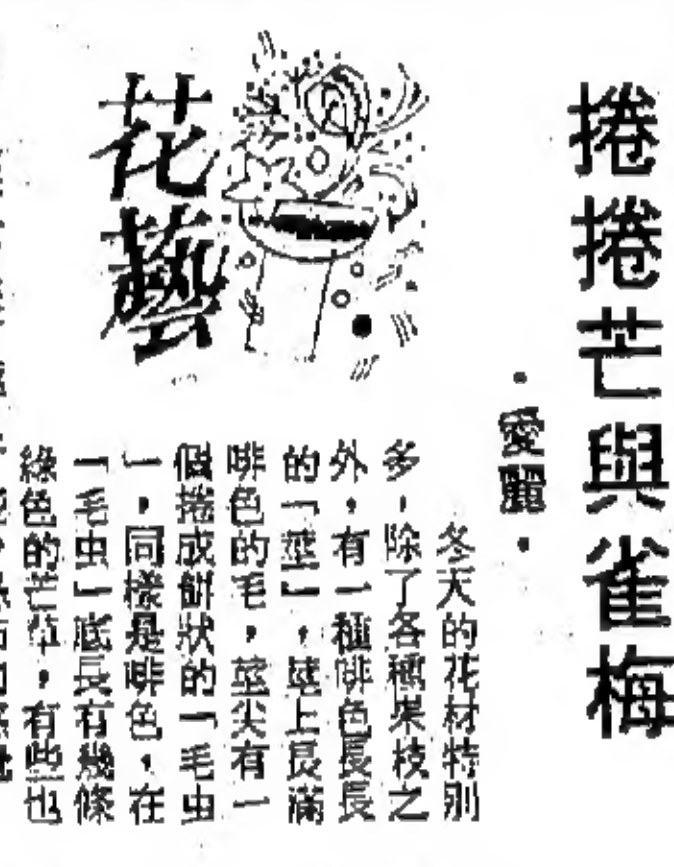 捲捲芒與雀梅
·愛麗·
花藝
冬天的花材特別
多，除了各種果枝之
外，有一種啡色長長
的「莖」，莖上長滿
啡色的毛，莖尖有一
個捲成餅狀的「毛虫
」，同樣是啡色，在
「毛虫」底長有幾條
綠色的芒草，有些也